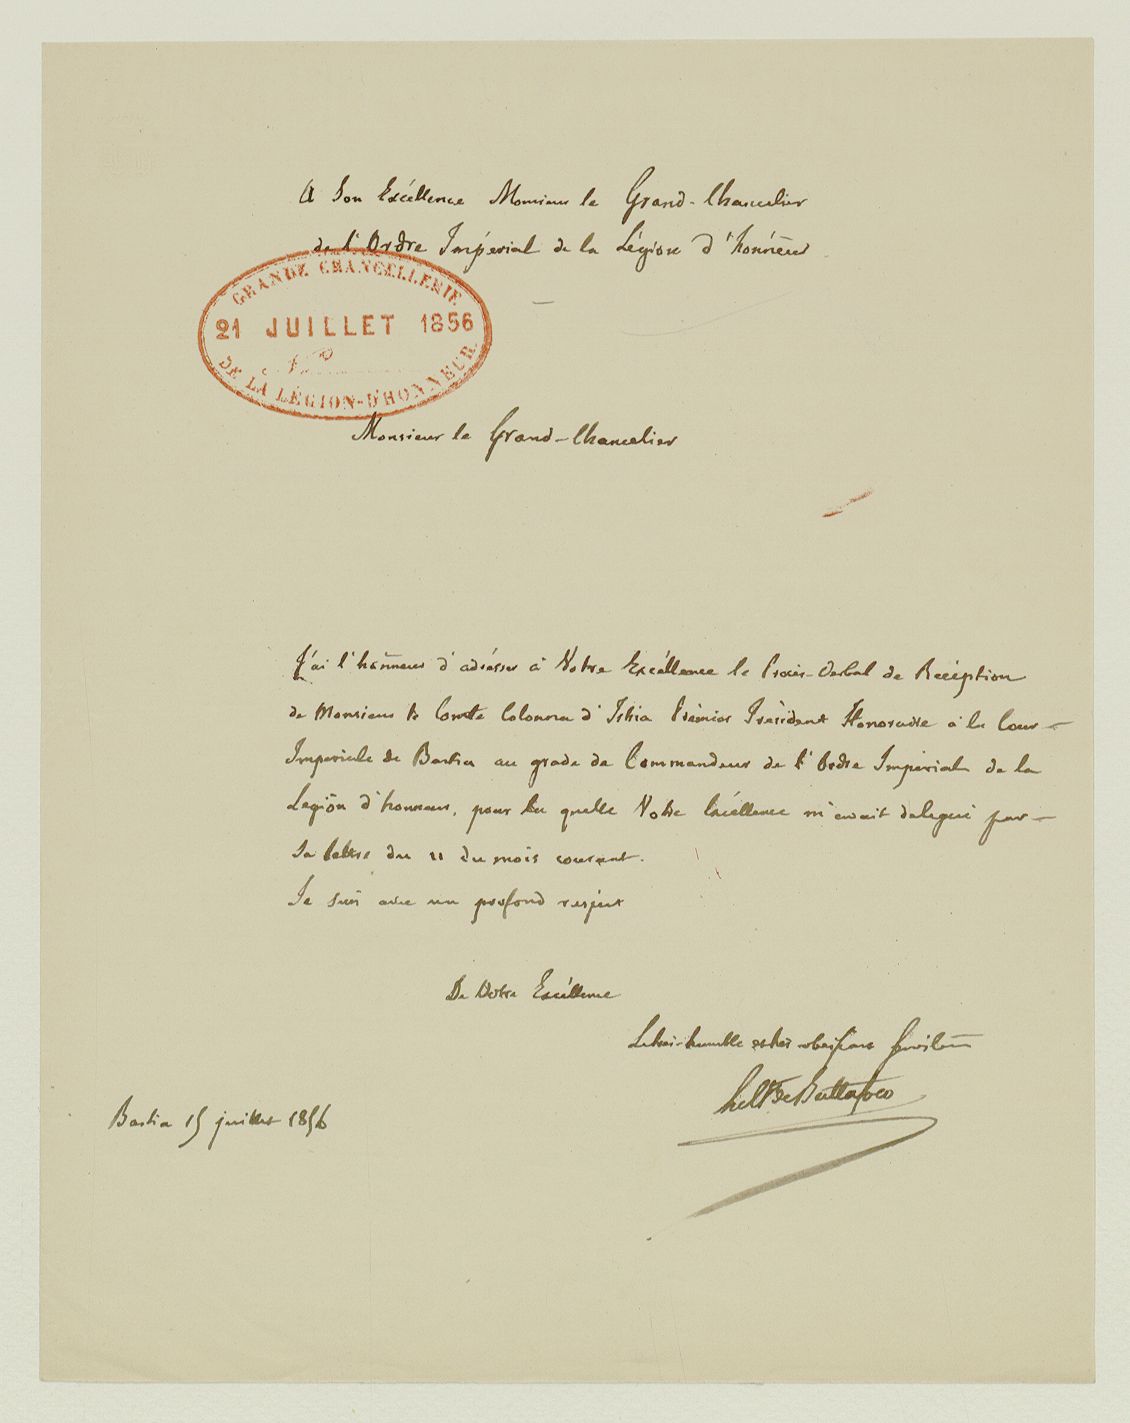 A Son Excéllence Monsieur le Grand-Chancelier
de l'Ordre Impérial de la Légion d'honneur
GRANDE CHANCELLERIE
21 JUILLET 1856
N°
DE LA LÉGION-D'HONNEUR
Monsieur le Grand-Chancelier
J'ai l'honneur d'adrésser à Votre Excéllence le Procès-Verbal de Recéption
de Monsieur le Comte Colonna d'Istria Prémier Président Honoraire à la Cour
Imperiale de Bastia au grade de Commandeur de l'Ordre Imperial de la
Legion d'honneur, pour la quelle Votre Excéllence m'avait delegué par
Sa lettre du 11 du mois courant.
Je suis avec un profond respect
De Votre Excéllence
Le très-humble et très obeissant Serviteur
de Buttafoco
Bastia 15 juillet 1856